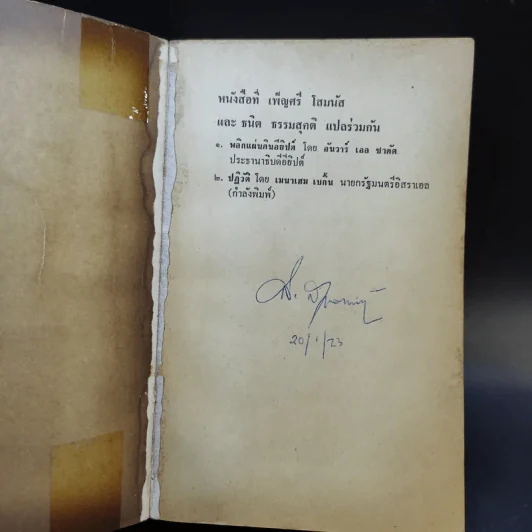 หนังสือที่ เพ็ญศรี โสมนัส
และ ธนิต ธรรมสุคติ แปลร่วมกัน
๑. พลิกแผ่นดินอียิปต์ โดย อันวาร์ เอล ซาดัต
ประธานาธิบดีอียิปต์
๒. ปฏิวัติ โดย เมนาเฮม เบกิ้น นายกรัฐมนตรีอิสราเอล
(กำลังพิมพ์)
20/1/23